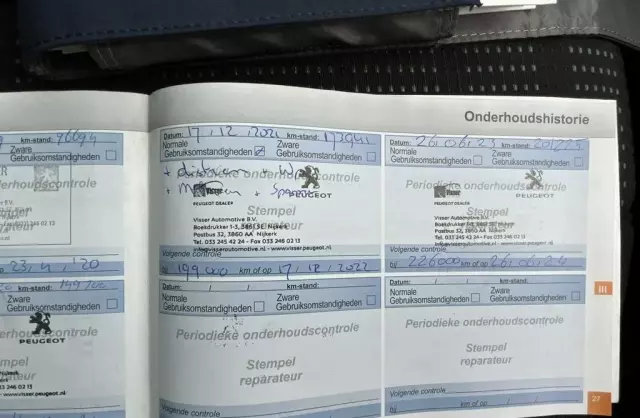 Onderhoudshistorie
km-stand: 96694
Zware
Gebruiksomstandigheden
onderhoudscontrole
Stempel
reparateur
23, 4, '20
Datum: 17, 12, 2021 km-stand: 173941
Normale
Gebruiksomstandigheden
Zware
Gebruiksomstandigheden
Periodieke onderhoudscontrole
Visser
PEUGEOT DEALER
PEUGEOT
Stempel
Visser Automotive B.V.
Boekdrukker 1-3, 3861 SE Nijkerk
Postbus 32, 3860 AA Nijkerk
Tel. 033 245 42 24 - Fax 033 246 02 13
info@visserautomotive.nl - www.visser.peugeot.nl
Volgende controle
bij 199.000 km of op 17, 12, 2022
Datum: 26, 06, 23 km-stand:
Normale
Gebruiksomstandigheden
Zware
Gebruiksomstandigheden
Periodieke onderhoudscontrole
Visser
PEUGEOT DEALER
PEUGEOT
Stempel
Visser Automotive B.V.
Boekdrukker 1-3, 3861 SE Nijkerk
Postbus 32, 3860 AA Nijkerk
Tel. 033 245 42 24 - Fax 033 246 02 13
info@visserautomotive.nl - www.visser.peugeot.nl
Volgende controle
bij 226000 km of op 26, 06, 24
km-stand:
Zware
Gebruiksomstandigheden
onderhoudscontrole
PEUGEOT
Stempel
reparateur
246 02 13
www.visser.peugeot.nl
Datum: / / km-stand:
Normale
Gebruiksomstandigheden
Zware
Gebruiksomstandigheden
Periodieke onderhoudscontrole
Stempel
reparateur
Volgende controle
bij km of op / /
Datum: / / km-stand:
Normale
Gebruiksomstandigheden
Zware
Gebruiksomstandigheden
Periodieke onderhoudscontrole
Stempel
reparateur
Volgende controle
bij km of op / /
III
27